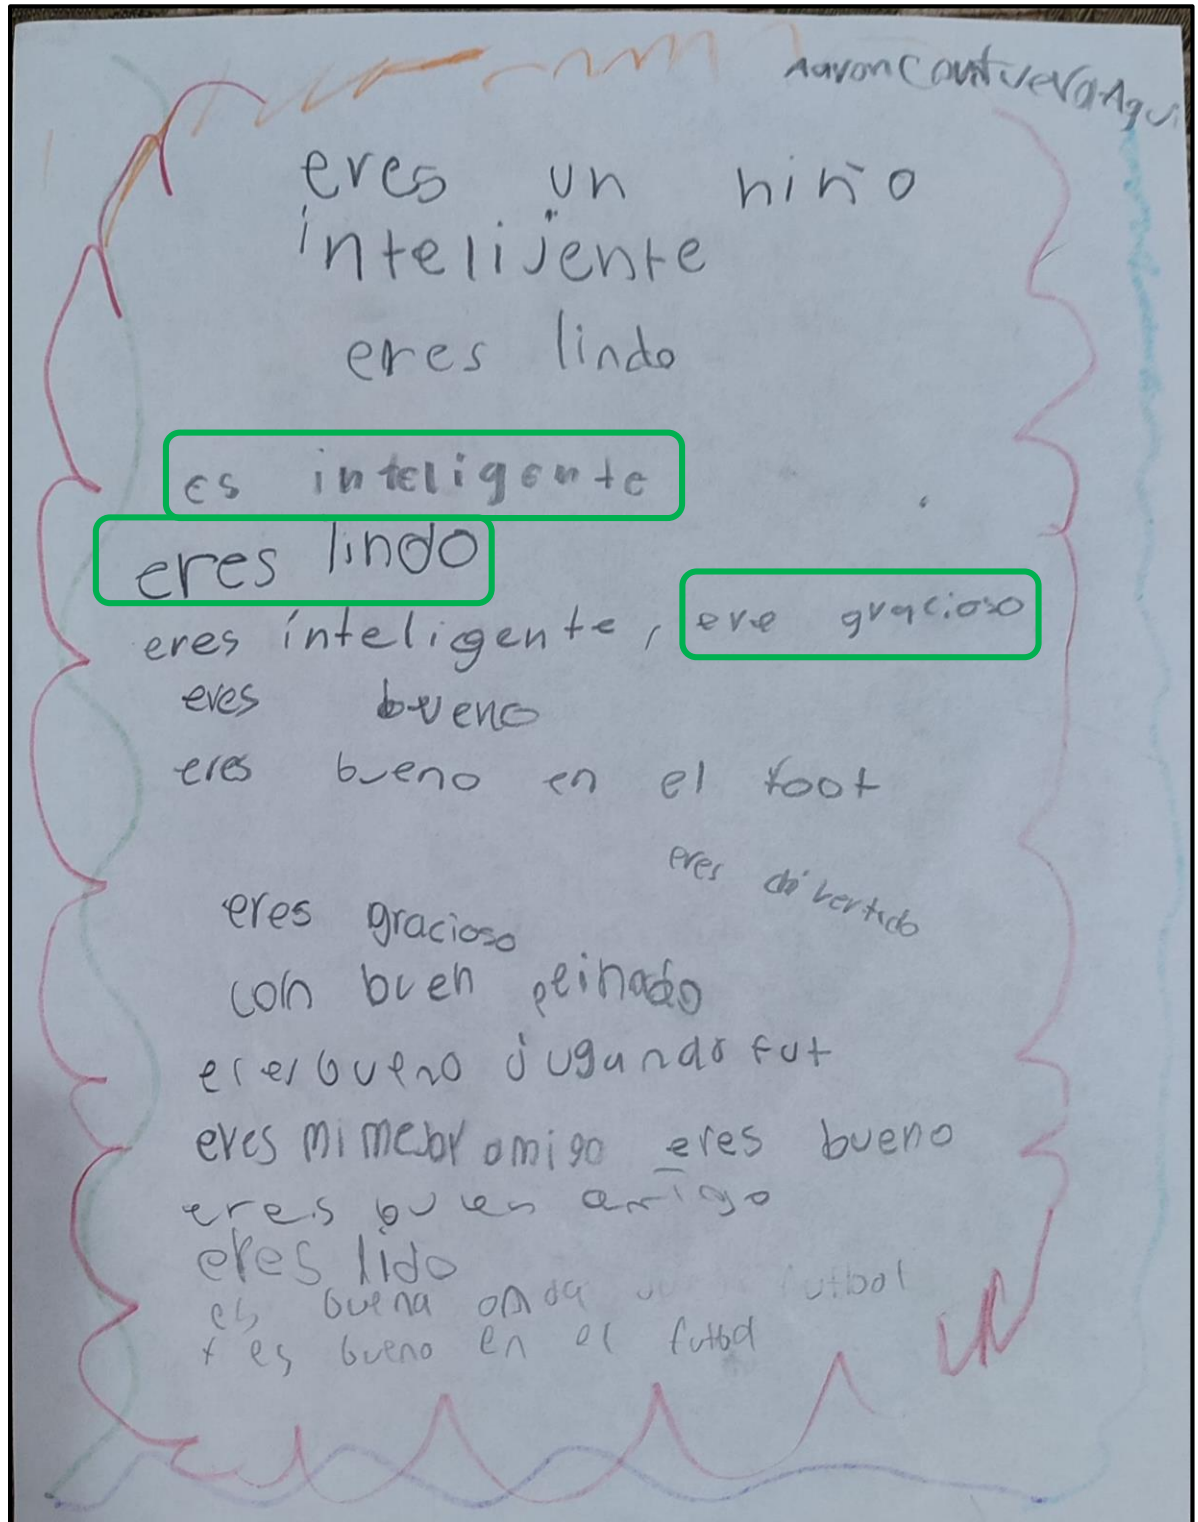 Aaron Contreras Agui
eres un niño
intelijente
eres lindo
es inteligente
eres lindo
eres inteligente, ere gracioso
eres bueno
eres bueno en el foot
eres divertido
eres gracioso
con buen peinado
eres bueno jugando fut
eres mi mejor amigo eres bueno
eres buen amigo
eres lido
es buena onda futbol
es bueno en el futbol